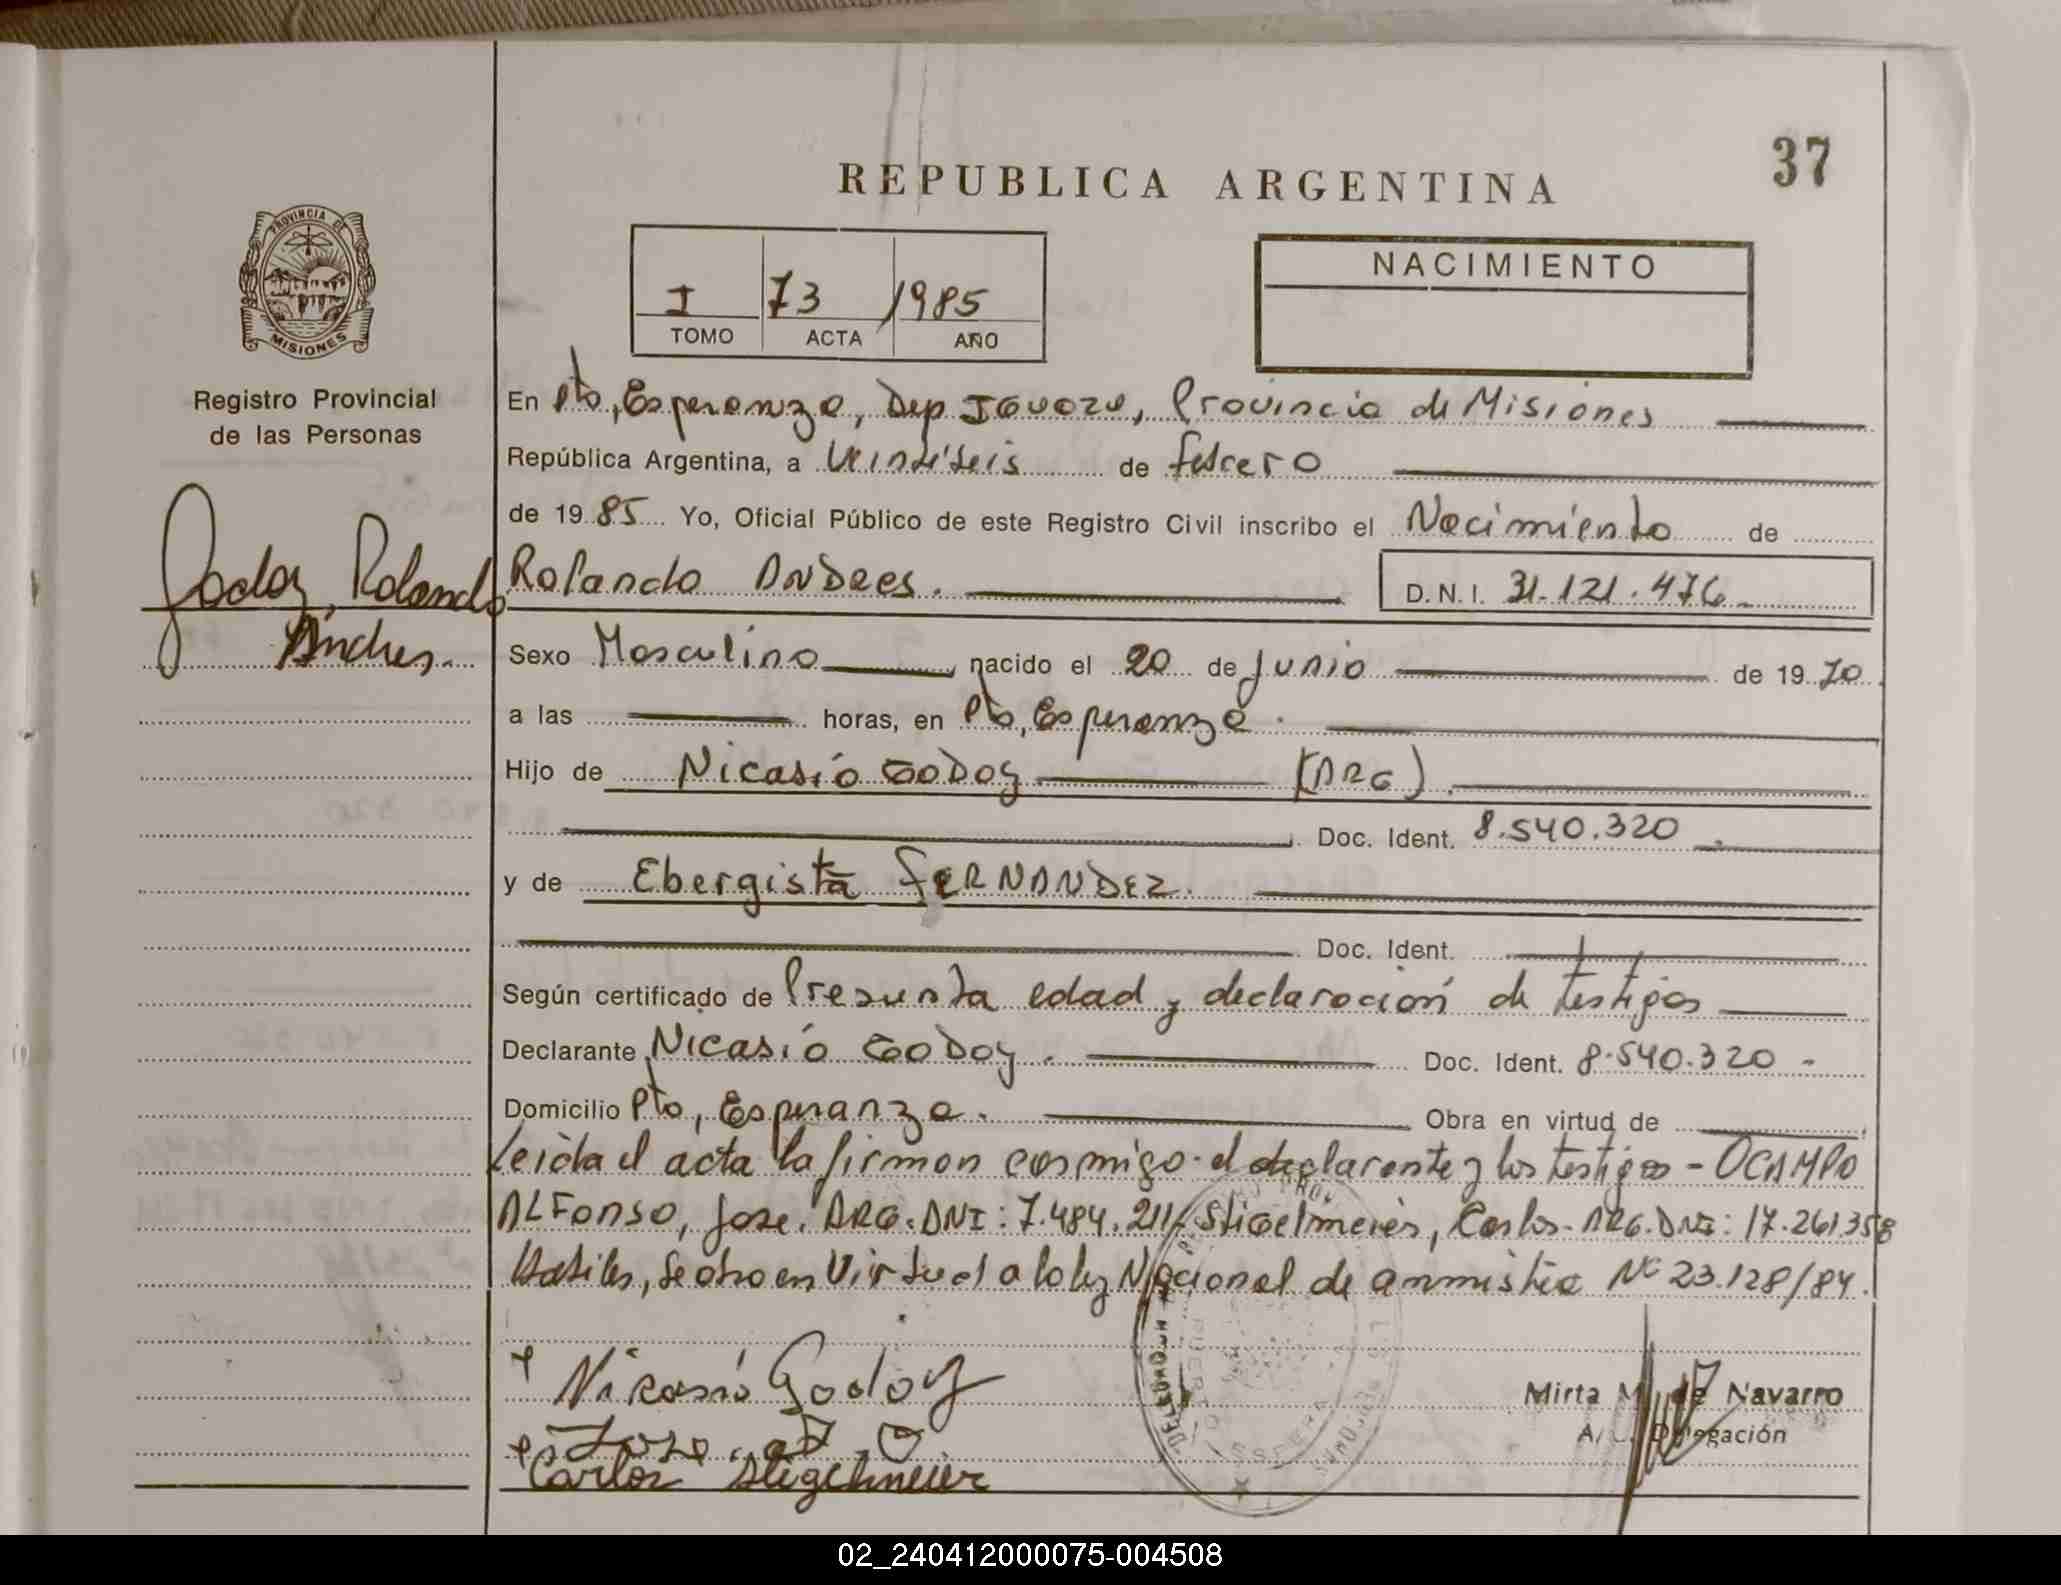 37
REPUBLICA ARGENTINA
PROVINCIA DE
MISIONES
Registro Provincial
de las Personas
I 73 1985
TOMO ACTA AÑO
NACIMIENTO
En Pto, Esperanza, Dep IGUAZU, Provincia de Misiones
República Argentina, a Veintiseis de febrero
de 1985 Yo, Oficial Público de este Registro Civil inscribo el Nacimiento de
Godoy, Rolando
Andres.
Rolando ANDRES.
D.N.I. 31.121.476
Sexo Masculino, nacido el 20 de Junio de 1970
a las horas, en Pto, Esperanza.
Hijo de Nicasio GODOY (ARG)
Doc. Ident. 8.540.320
y de Ebergista FERNANDEZ.
Doc. Ident.
Según certificado de Presunta edad y declaración de testigos
Declarante Nicasio GODOY. Doc. Ident. 8.540.320 -
Domicilio Pto, Esperanza. Obra en virtud de
Leida el acta la firman conmigo el declarante y los testigos - OCAMPO
ALFONSO, Jose. ARG. DNI: 7.484.211 Carlos - ARG. DNI: 17.261.358
Habiles, se obro en Virtud a la ley Nacional de ammistia Nº 23.128/84.
Nicasio Godoy
Carlos Stigelmeier
Mirta M. de Navarro
Delegación
02_240412000075-004508